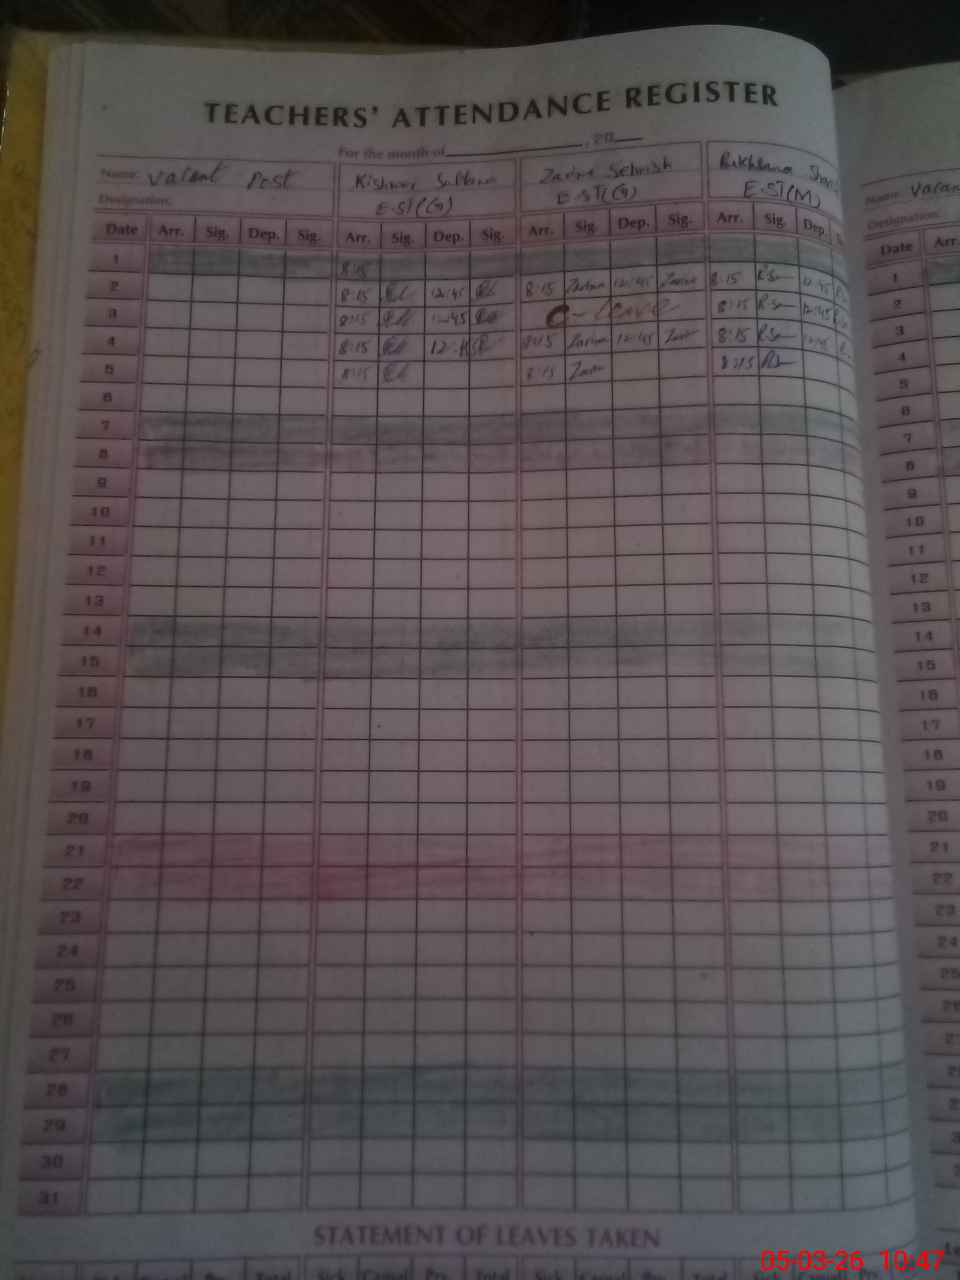 TEACHERS' ATTENDANCE REGISTER
For the month of , 20
Name: Valent Post Kishwar Sultana Zarine Sehrish Rukhsana
Designation: E.ST(G) E.ST(G) E.ST(M)
Date Arr. Sig. Dep. Sig. Arr. Sig. Dep. Sig. Arr. Sig. Dep. Sig. Arr. Sig. Dep.
1 8:15
2 8:15 12:45 8:15 12:45 8:15 R.S 12:45
3 8:15 12:45 C-leave 8:15 R.S 12:45
4 8:15 12:45 8:15 12:45 8:15 R.S 12:45
5 8:15 8:15 8:15
6
7
8
9
10
11
12
13
14
15
16
17
18
19
20
21
22
23
24
25
26
27
28
29
30
31
STATEMENT OF LEAVES TAKEN
Total Sick Casual Prv. Total Sick Casual Prv. Total
Name: Vacan
Designation:
Date Arr.
1
2
3
4
5
6
7
8
9
10
11
12
13
14
15
16
17
18
19
20
21
22
23
24
25
26
05-03-26 10:47